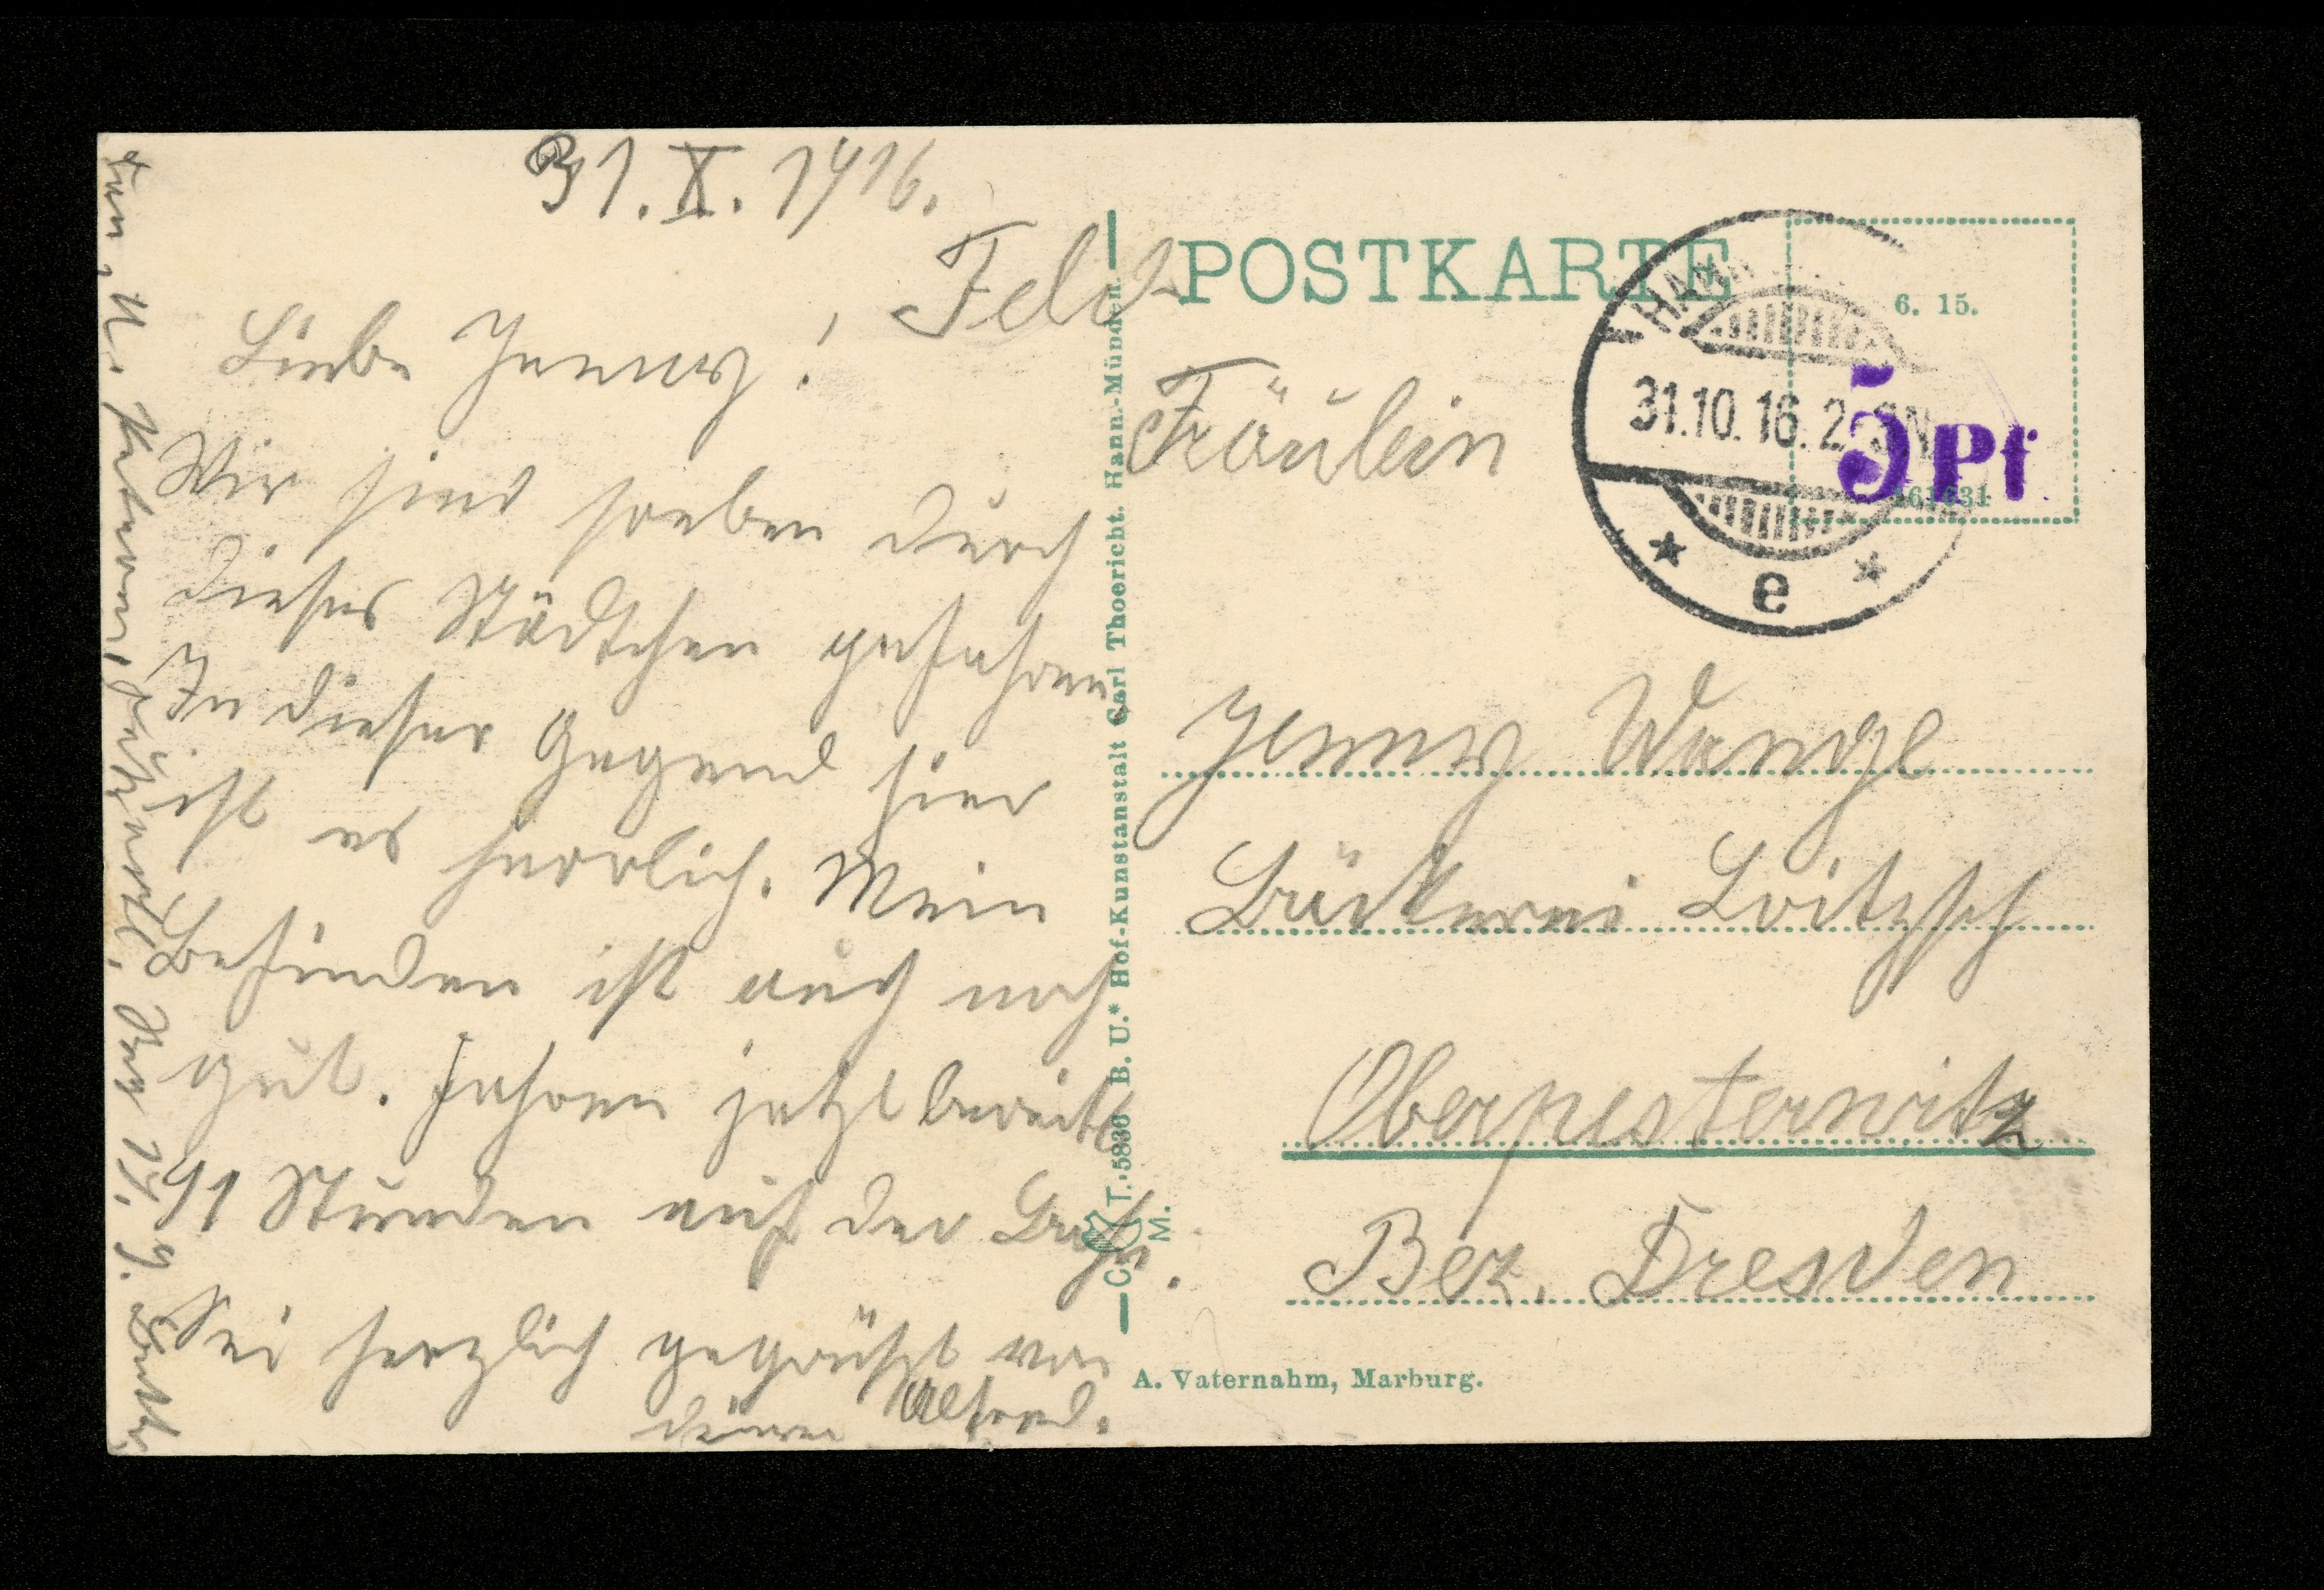 31. X. 1916.
Liebe Jenny!
Wir sind soeben durch
dieses Städtchen gefahren
In dieser Gegend hier
ist es herrlich. Mein
Befinden ist auch noch
gut. Fahren jetzt bereits
41 Stunden auf der Bahn.
Sei herzlich gegrüßt von
deinem Alfred.
Feld-
POSTKARTE
6. 15.
31.10.16. 2
e
5 Pf
Fräulein
Jenny Wange
Bäckerei Loitzsch
Oberpesterwitz
Bez. Dresden
A. Vaternahm, Marburg.
C. T. 5830 B. U.* Hof-Kunstanstalt Carl Thoericht. Hann.-Münden.
M.